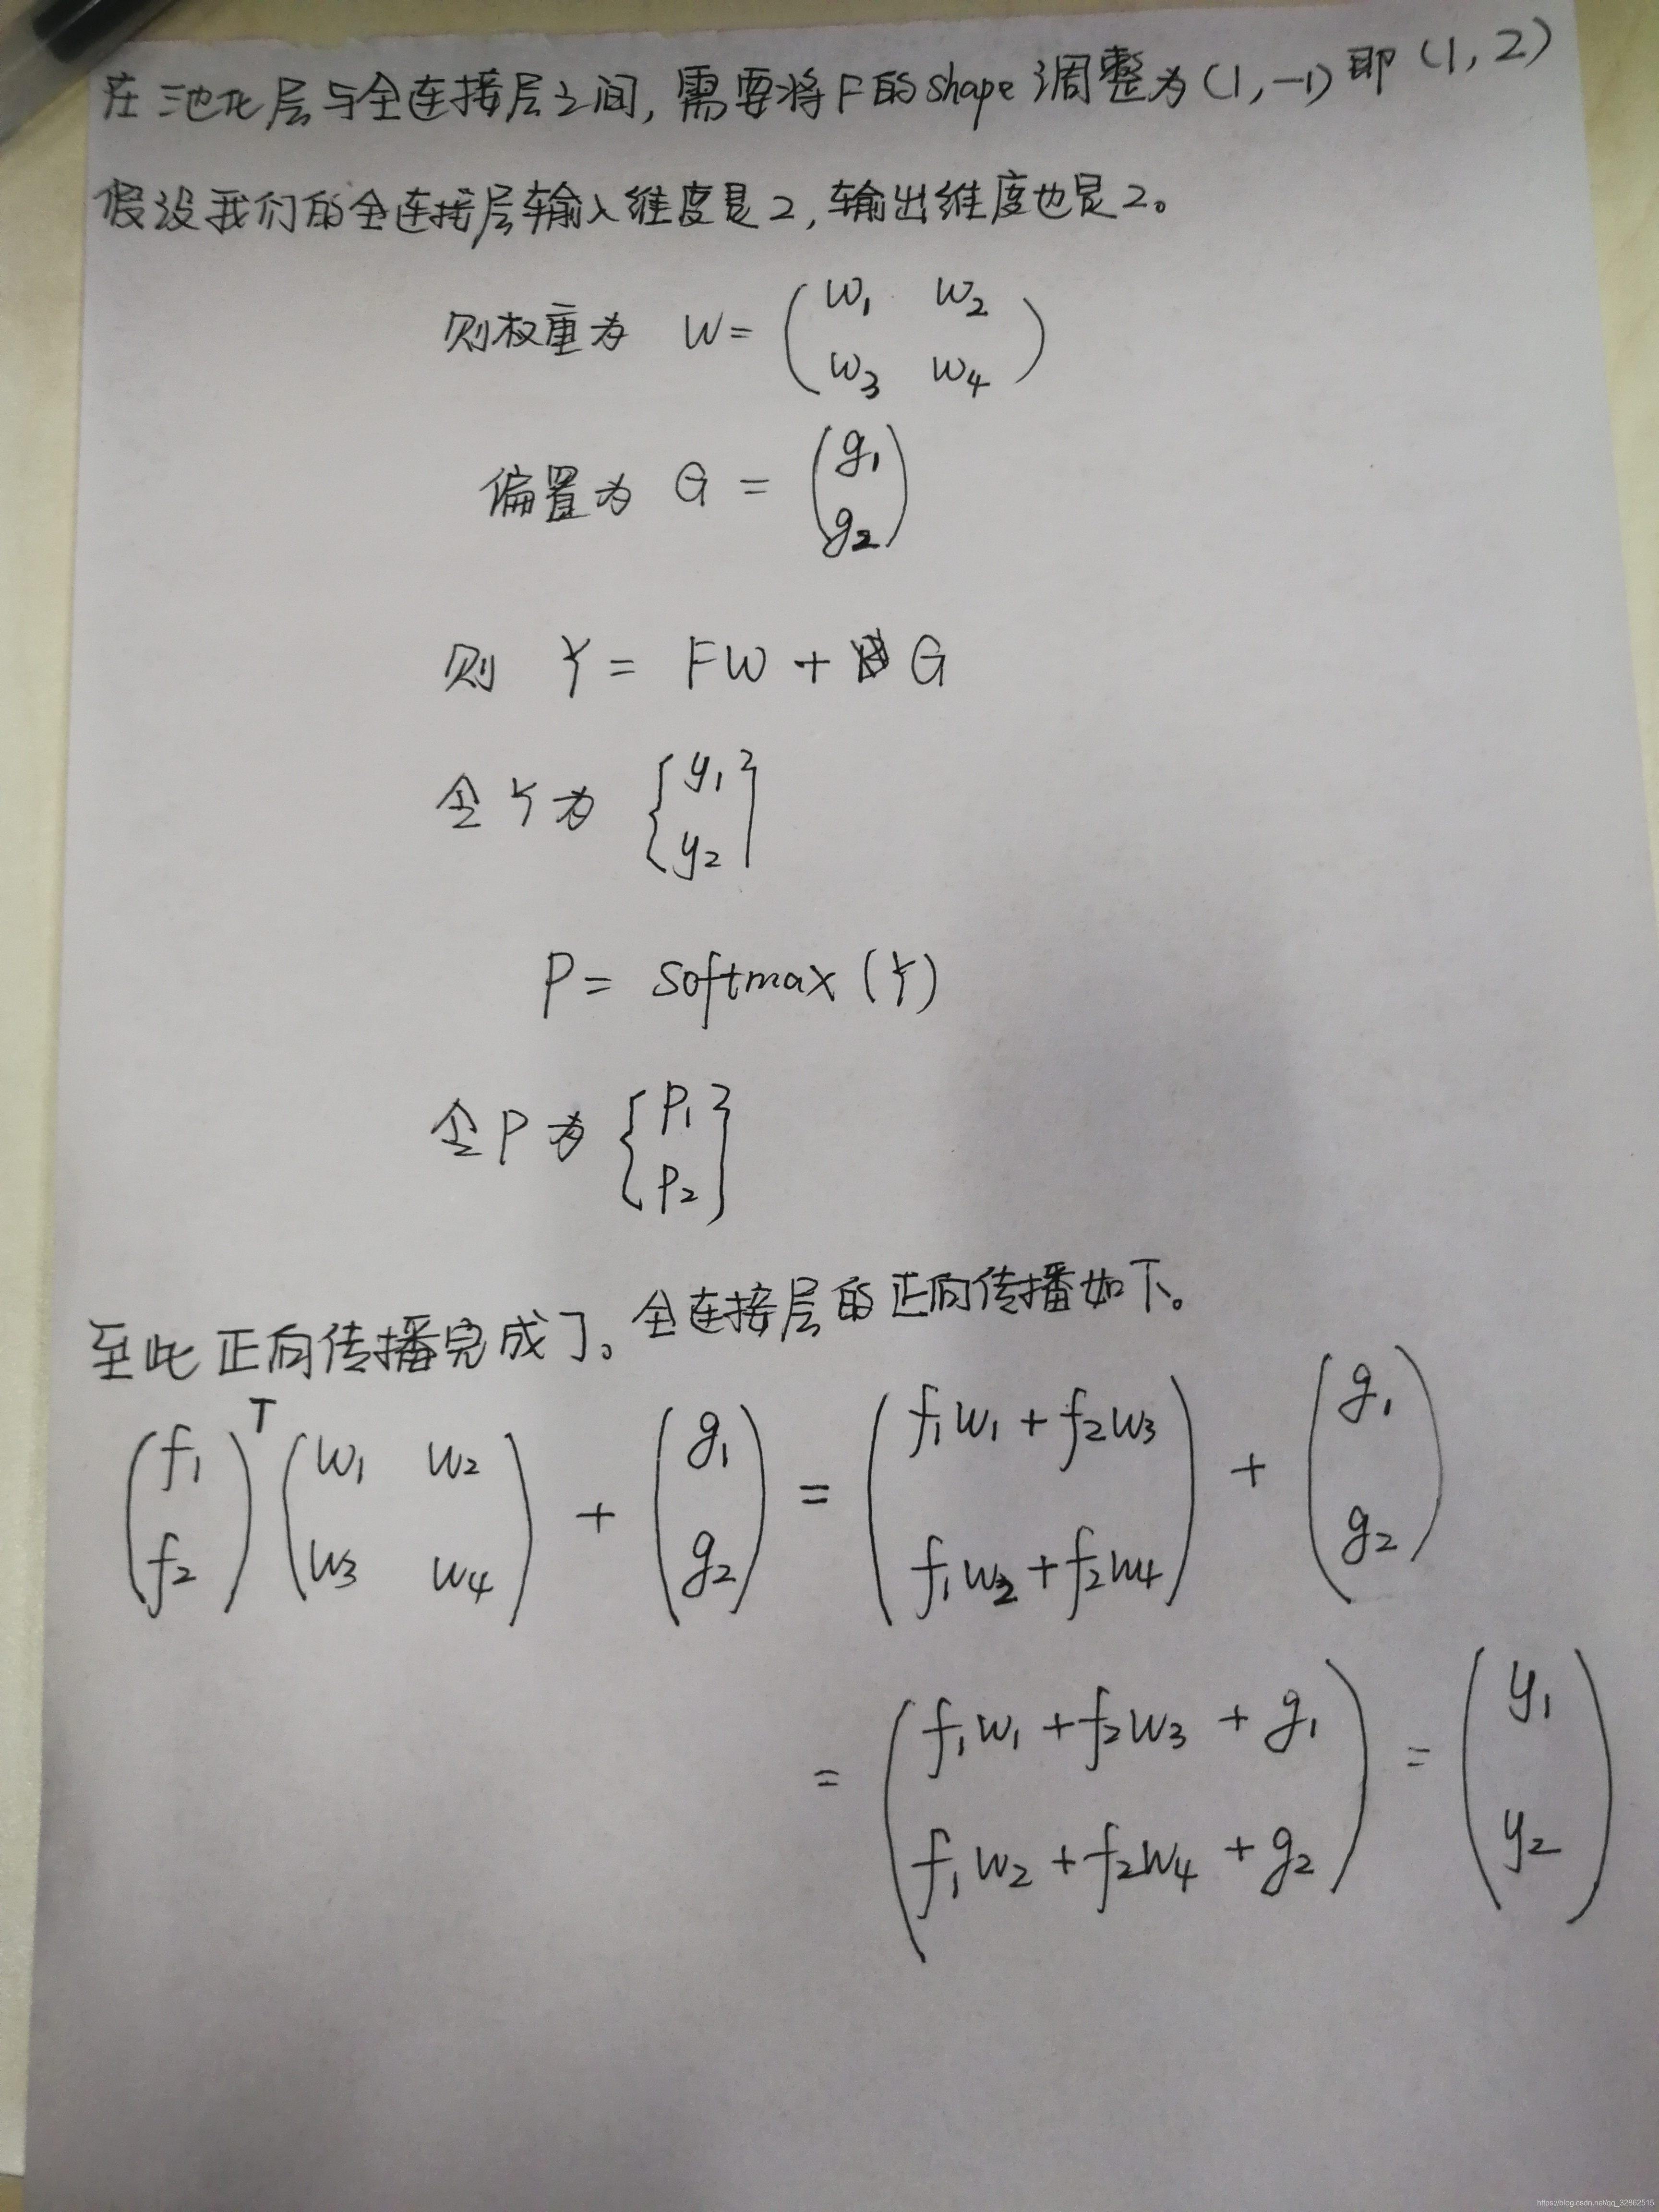 在池化层与全连接层之间,需要将F的shape调整为(1,-1)即(1,2)
假设我们的全连接层输入维度是2,输出维度也是2。
则权重为 W = ( w₁ w₂
w₃ w₄ )
偏置为 G = ( g₁
g₂ )
则 Y = FW + G
令Y为 { y₁
y₂ }
P = softmax(Y)
令P为 { p₁
p₂ }
至此正向传播完成了。全连接层的正向传播如下。
( f₁ f₂ )ᵀ ( w₁ w₂ w₃ w₄ ) + ( g₁ g₂ ) = ( f₁w₁ + f₂w₃ f₁w₂ + f₂w₄ ) + ( g₁ g₂ )
= ( f₁w₁ + f₂w₃ + g₁ f₁w₂ + f₂w₄ + g₂ ) = ( y₁ y₂ )
https://blog.csdn.net/qq_32862515